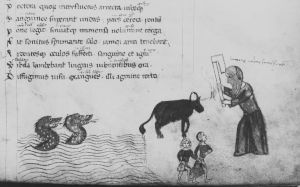 P ectora quoꝝ inter fluctus arrecta iubeq;
S anguinee superant undas pars cetera pontū
P one legit sinuatq; immensa uolumine terga
F it sonitus spumante salo iamq; arua tenebant
A rdentesq; oculos suffecti sanguine et igni
S ibila lambebant linguis uibrantibus ora
D iffugimus uisu exangues illi agmine certo